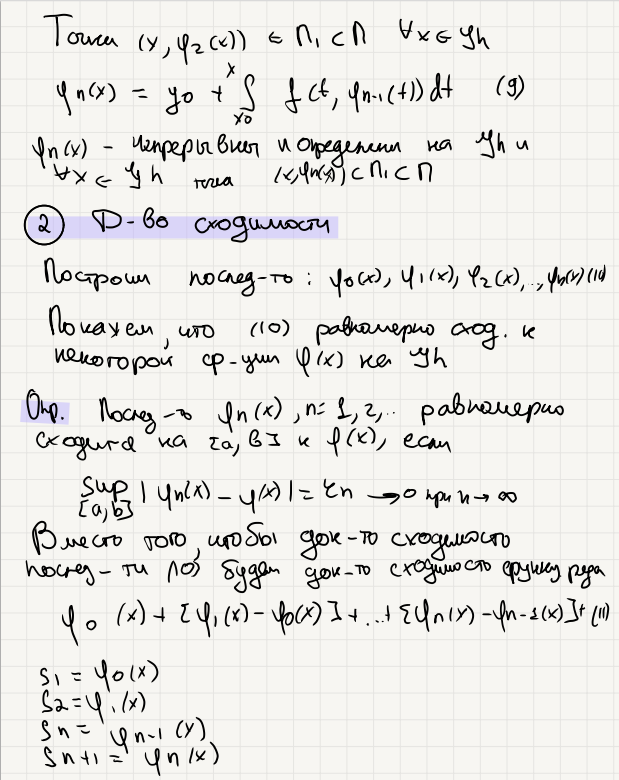 Точки (x, φ₂(x)) ∈ Π₁ ⊂ Π ∀x ∈ Yh
φn(x) = y₀ + ∫ₓ₀ˣ f(t, φn-1(t))dt (9)
φn(x) - непрерывны и определены на Yh и
∀x ∈ Yh точка (x, φn(x)) ⊂ Π₁ ⊂ Π
② Д-во сходимости
Построим послед-ть: φ₀(x), φ₁(x), φ₂(x), .., φn(x) (10)
Покажем, что (10) равномерно сход. к
некоторой ф-ции φ(x) на Yh
Опр. Послед-ть φn(x), n = 1, 2, .. равномерно
сходится на [a, b] к φ(x), если
Sup |φn(x) - φ(x)| = εn → 0 при n → ∞
[a, b]
Вместо того, чтобы док-ть сходимость
послед-ти 10) будем док-ть сходимость функц ряда
φ₀(x) + [φ₁(x) - φ₀(x)] + ... + [φn(x) - φn-1(x)] + (11)
S₁ = φ₀(x)
S₂ = φ₁(x)
Sn = φn-1(x)
Sn+1 = φn(x)